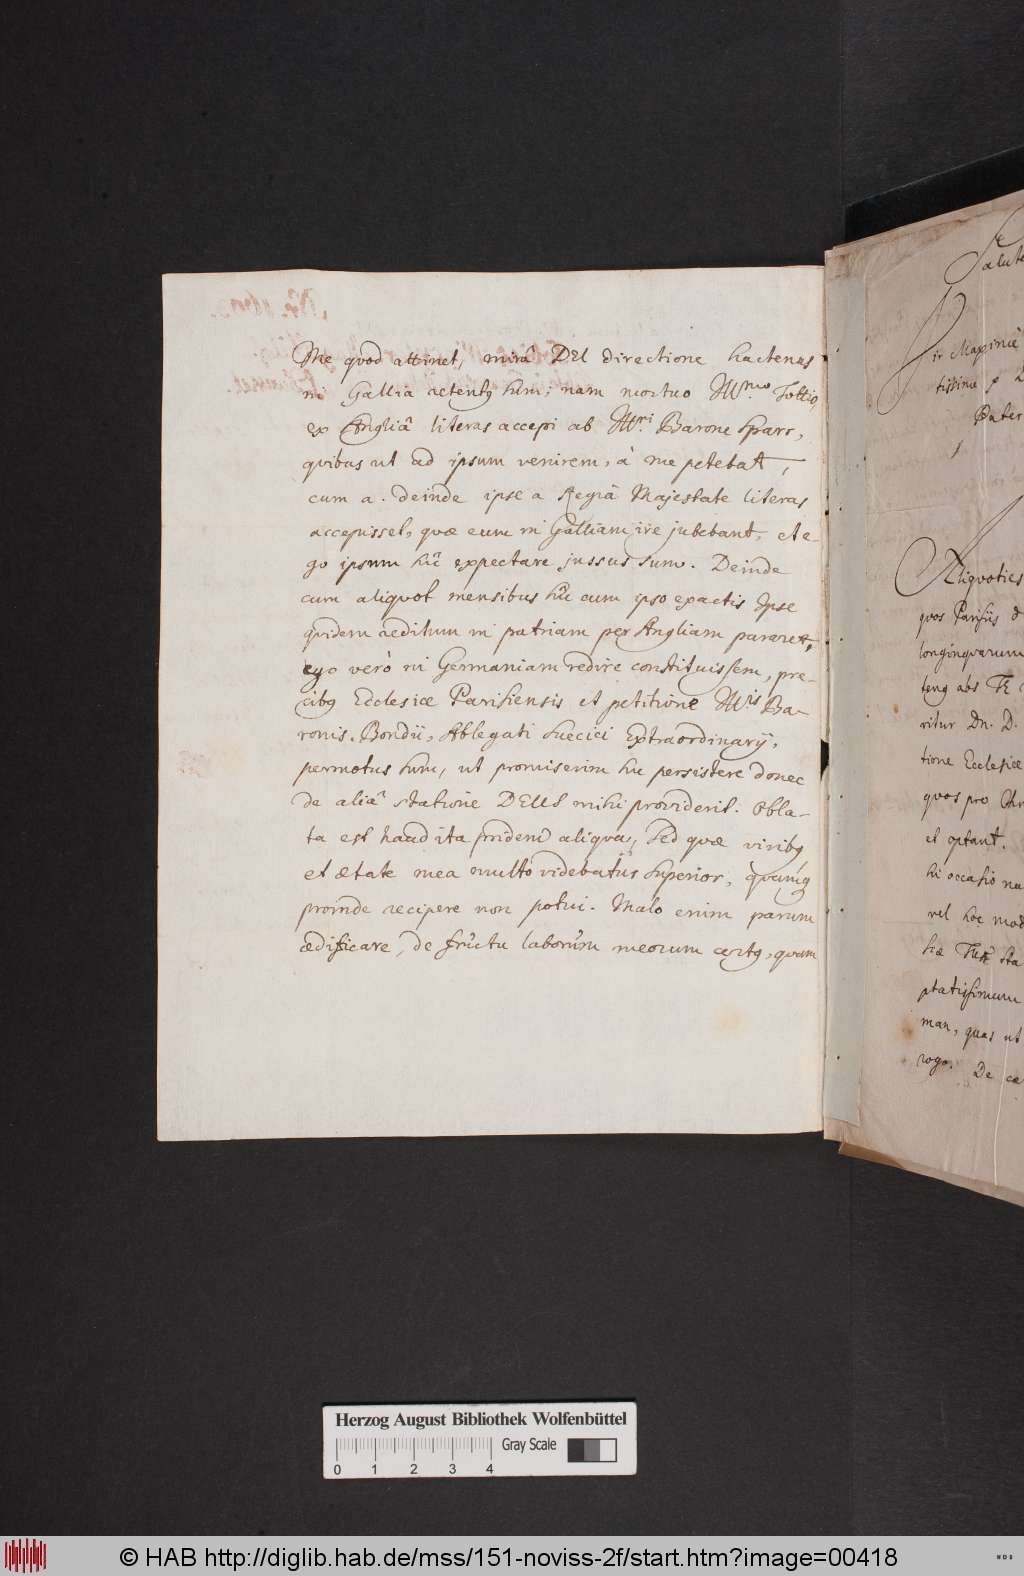 Me quod attinet, mirâ DEI directione hactenus
in Gallia retentq sum, nam mortuo Ill.mo Tottio,
ex Angliâ literas accepi ab Ill.ri Barone Sparr,
quibus ut ad ipsum venirem, à me petebatt,
cum a. deinde ipse a Regiâ Majestate literas
accepisset, quæ eum in Galliam ire jubebant, et e-
go ipsum hîc expectare jussus sum. Deinde
cum aliquot mensibus hîc cum ipso exactis Ipse
quidem reditum in patriam per Angliam pararett,
ego verò in Germaniam redire constituissem, pre-
cibq Ecclesiæ Parisiensis et petitione Ill.is Ba-
ronis. Bondii, Ablegati Suecici Extraordinarij,
permotus sum, ut promiserim hic persistere donec
de aliâ statione DEUS mihi provideret. Obla-
ta est haud ita pridem aliqua, sed quæ viribq
et ætate mea multo videbatur superior, quamq
proinde recipere non potui. Malo enim parum
ædificare, de fructu laborum meorum certq, quam
Salute
ir Maxime
Pater
Aliquoties
quos Parisiis d
longinquarum
teng abs TE
ritur Dn. D.
tione Ecclesiæ
quos pro
et optant.
hi occasio na
vel hoc mod
hæ sta
ptatissimum
man, quas ut
rogo. De cæ
Herzog August Bibliothek Wolfenbüttel
Gray Scale
0 1 2 3 4
© HAB http://diglib.hab.de/mss/151-noviss-2f/start.htm?image=00418